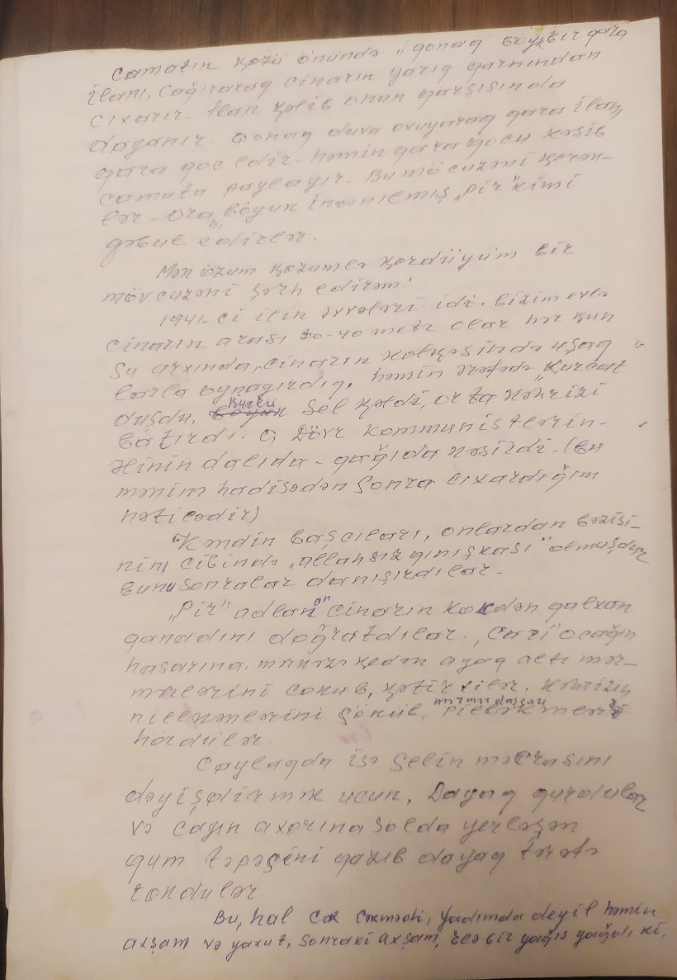 Camatın gözü önündə "qonaq" böyük bir qara
ilanı, çağıraraq çinarın yarıq qarnından
çıxarır. İlan gəlib onun qarşısında
dayanır. Qonaq dua oxuyaraq qara ilanı
qara qoç edir. Həmin qara qoçu kəsib
camata paylayır. Bu möcuzəni görən-
lər - ona, böyük inanılmış "pir" kimi
qəbul edirlər.
Mən özüm gözümlə gördüyüm bir
mövcuzəni şərh edirəm:
1941-ci ilin əvvəlləri idi. Bizim evlə
çinarın arası 30-40 metr olar hər gün
su arxında, çinarın kölgəsində uşaq
larla oynayırdıq. həmin ərəfədə
düşdü, güclü sel gəldi, orta kəhrizi
batırdı. O Dövr kommunistlərin-
dalında - qağıda kəsildi. (bu
mənim hadisədən sonra çıxardığım
nəticədir)
Kəndin başçıları, onlardan bəzisi-
nin cibində "allahsız qınışkası" olmuşdur
bunu sonralar danışırdılar.
"Pir" adlanan çinarın kökdən qalxan
qanadını doğratdılar. ocağın
hasarına. gedən ayaq altı mər-
mərlərini çöküb, gətirdilər. Kəhrizin
pilləkənlərini söküb, mərmərdaşdan pilləkənləri
hördülər.
Çaylaqda isə selin məcrasını
dəyişdirmək üçün, Dayaq qurdular
və çayın axarına solda yerləşən
qum təpəsini qazıb dayaq tərəfə
tökdülər
Bu, hal çox çəkmədi, yadımda deyil həmin
axşam və yaxut, sonraki axşam, elə bir yağış yağdı ki,